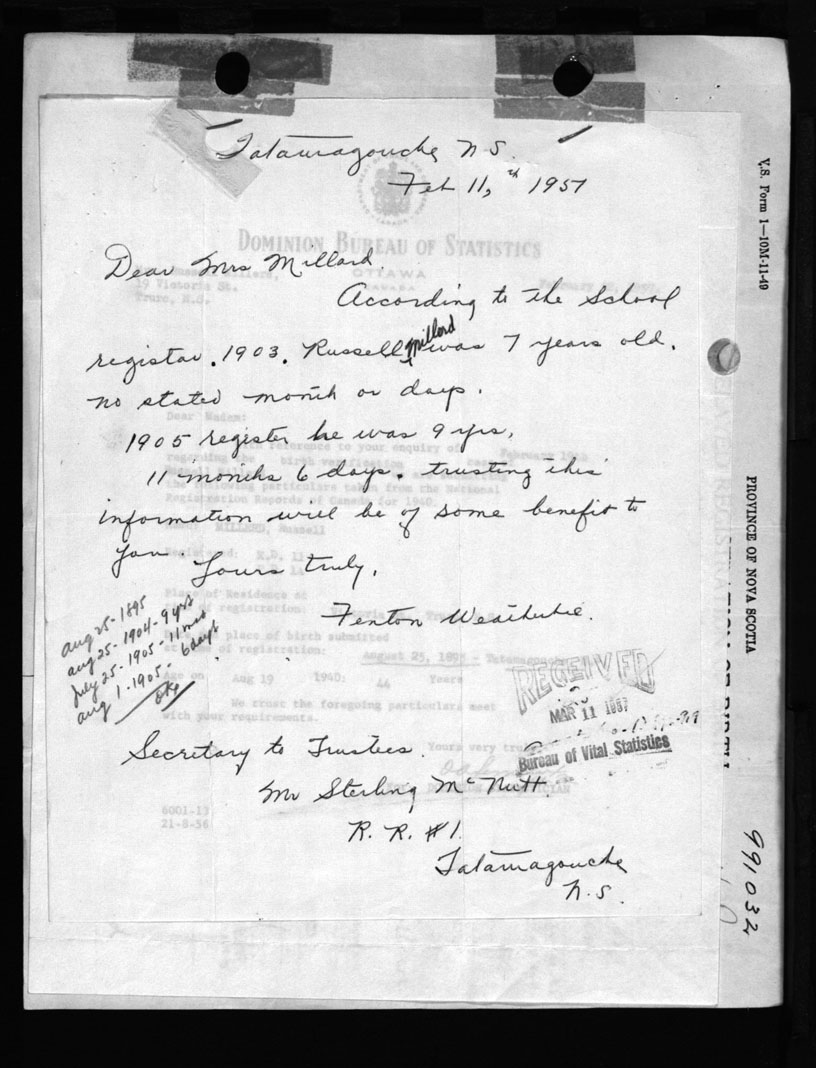 Tatamagouche N.S.
Feb 11, th 1957
DOMINION BUREAU OF STATISTICS
OTTAWA
CANADA
Dear Mrs Millard.
19 Victoria St.
Truro, N.S.
According to the School
registar. 1903. Russell Millard was 7 years old.
no stated month or days.
Dear Madam:
1905 register he was 9 yrs,
reference to your enquiry of
regarding the birth verification
11 months 6 days. trusting this
the following particulars taken from the National
Registration Records of Canada for 1940.
information will be of some benefit to
MILLERD, Russell
you. Yours truly,
Place of Residence at
of registration:
Fenton Weatherbie.
place of birth submitted
of registration: August 25, 1895 - Tatamagouche
Age on Aug 19 1940: 44 Years
We trust the foregoing particulars meet
with your requirements.
aug 25 - 1895
aug 25 - 1904 - 9 yrs
July 25 - 1905 - 11 mos
aug 1 - 1905 - 6 days
OK
RECEIVED
MAR 11 1957
Bureau of Vital Statistics
Yours very
Secretary to Trustees.
Mr Sterling McNutt.
R. R. #1.
Tatamagouche
N.S.
6001-13
21-8-56
V.S. Form 1—10M-11-49
PROVINCE OF NOVA SCOTIA
991032